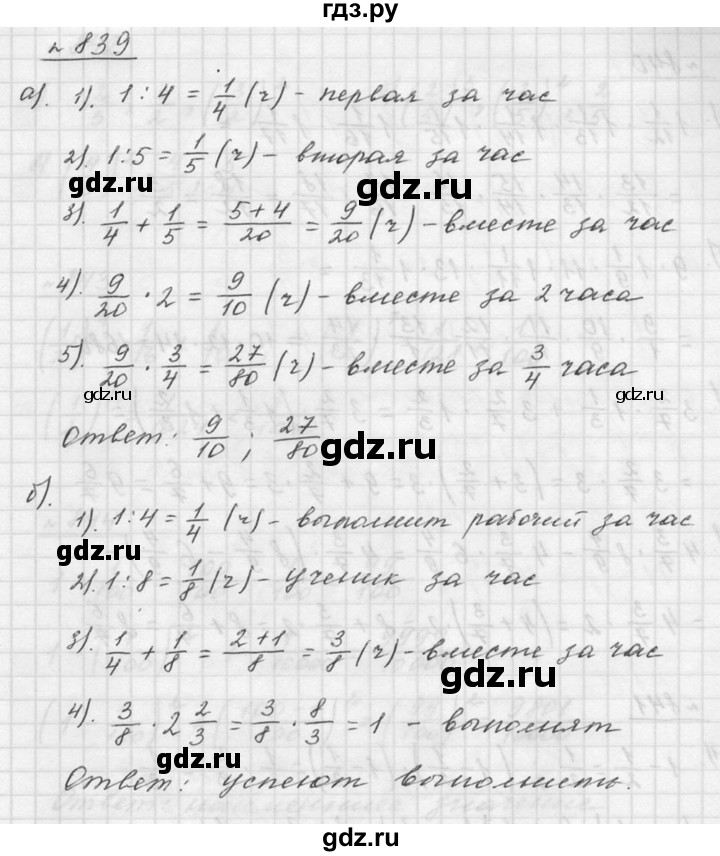 гдз.ру
№ 839
а). 1). 1 : 4 = 1/4 (ч) - первая за час
2). 1:5 = 1/5 (ч) - вторая за час
gdz.ru
gdz.ru
3). 1/4 + 1/5 = (5+4)/20 = 9/20 (ч) - вместе за час
4). 9/20 · 2 = 9/10 (ч) - вместе за 2 часа
5). 9/20 · 3/4 = 27/80 (ч) - вместе за 3/4 часа
gdz.ru
gdz.ru
Ответ: 9/10 ; 27/80
gdz.ru
б).
1). 1:4 = 1/4 (ч) - выполнит рабочий за час
gdz.ru
2). 1:8 = 1/8 (ч) - ученик за час
3). 1/4 + 1/8 = (2+1)/8 = 3/8 (ч) - вместе за час
gdz.ru
4). 3/8 · 2 2/3 = 3/8 · 8/3 = 1 - выполнят
gdz.ru
Ответ: успеют выполнить.
gdz.ru